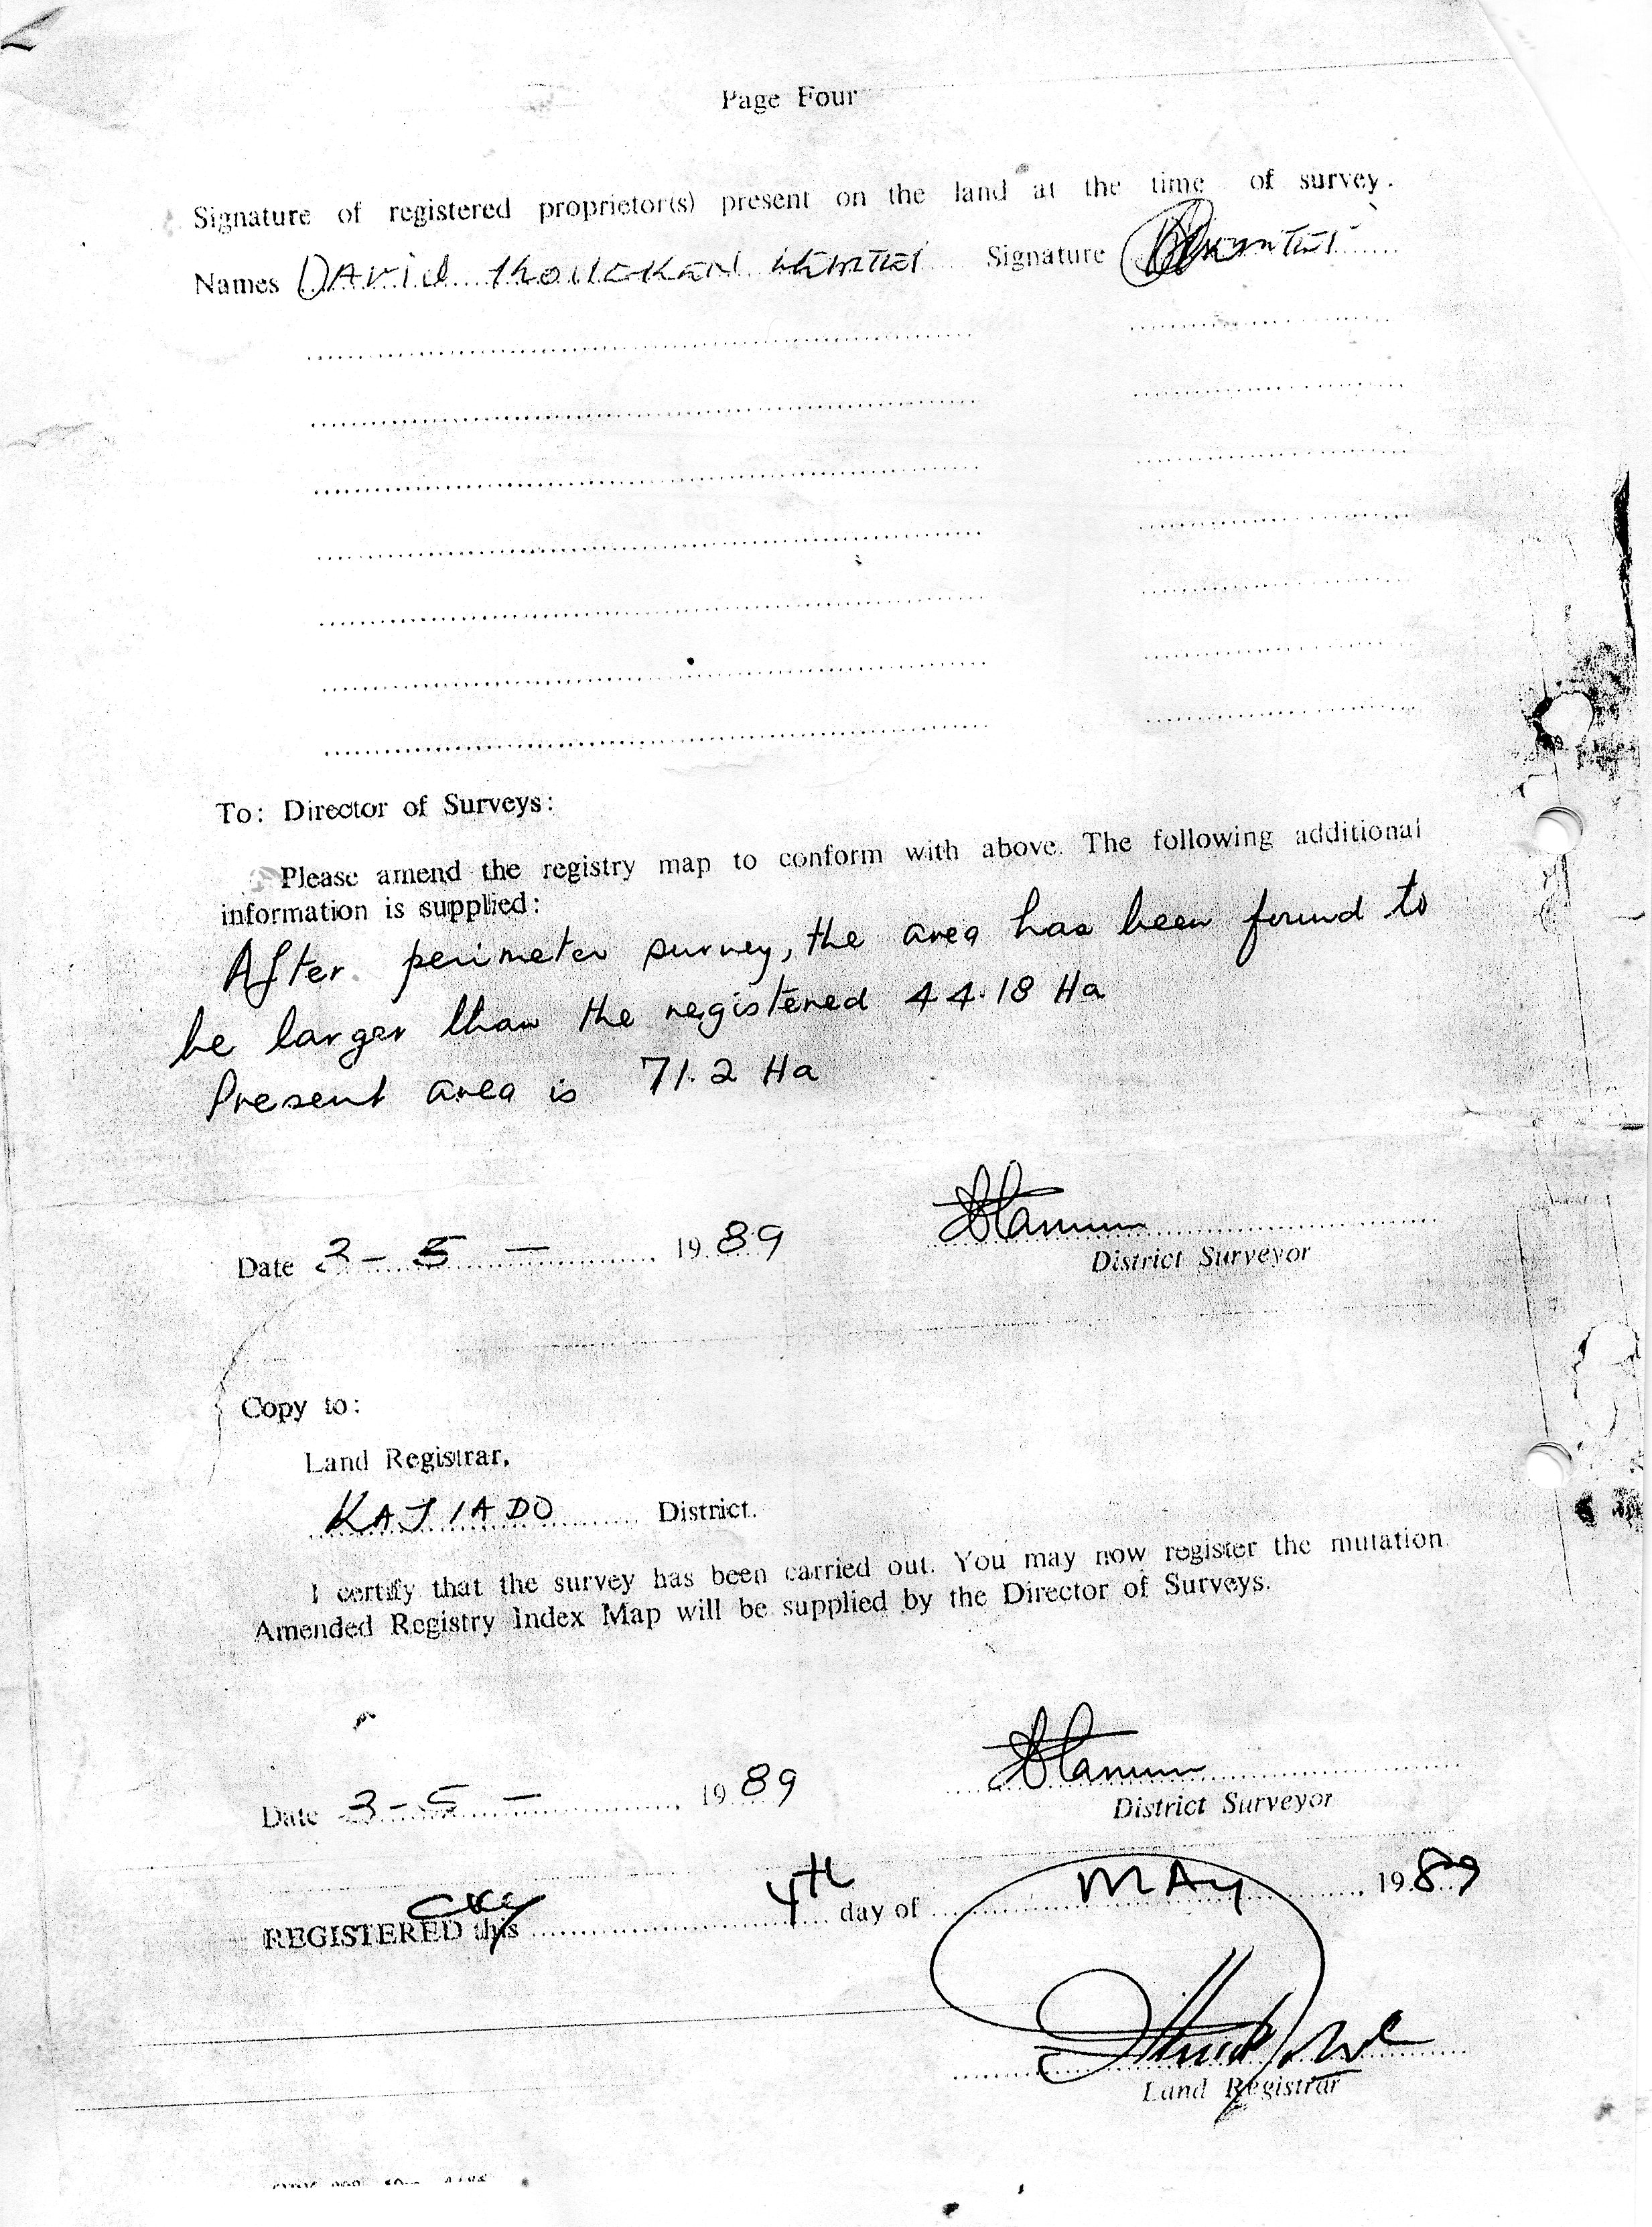 Page Four
Signature of registered proprietor(s) present on the land at the time of survey.
Names DAVID Signature
To: Director of Surveys:
Please amend the registry map to conform with above. The following additional
information is supplied:
After perimeter survey, the area has been found to
be larger than the registered 44.18 Ha
Present area is 71.2 Ha
Date 3-5- 1989
District Surveyor
Copy to:
Land Registrar,
KAJIADO District.
I certify that the survey has been carried out. You may now register the mutation.
Amended Registry Index Map will be supplied by the Director of Surveys.
Date 3-5- 1989
District Surveyor
REGISTERED this 4th day of MAY, 1989
Land Registrar